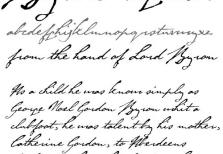 abcdefghijklmnopqrstuvwxyz
from the hand of Lord Byron
As a child he was known simply as
George Noel Gordon Byron whit a
clubfoot, he was talent by his mother,
Catherine Gordon, to Aberdeens